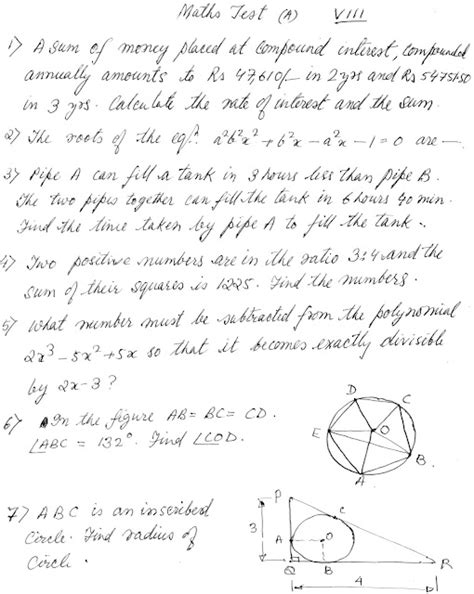 Maths Test (A) VIII
1) A sum of money placed at compound interest, compounded
annually amounts to Rs 47,610/- in 2 yrs and Rs 54751.50
in 3 yrs. Calculate the rate of interest and the sum.
2) The roots of the eqn. a²b²x² + b²x - a²x - 1 = 0 are —
3) Pipe A can fill a tank in 3 hours less than pipe B.
The two pipes together can fill the tank in 6 hours 40 min.
Find the time taken by pipe A to fill the tank.
4) Two positive numbers are in the ratio 3:4 and the
sum of their squares is 1225. Find the numbers.
5) What number must be subtracted from the polynomial
2x³ - 5x² + 5x so that it becomes exactly divisible
by 2x-3?
6) In the figure AB = BC = CD.
∠ABC = 132°. Find ∠COD.
D C
E O
B
A
7) ABC is an inscribed
Circle. Find radius of
Circle.
P
C
3
A O
Q B R
4